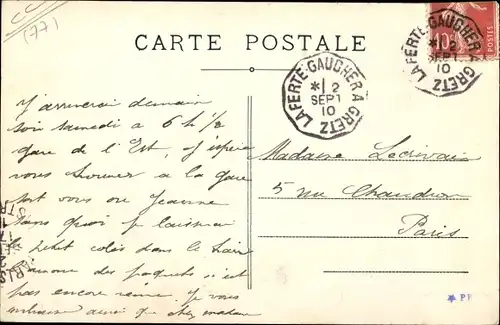 (77)
CARTE POSTALE
LAFERTE-GAUCHER A GRETZ
* 2
SEPT
10
LAFERTE-GAUCHER A GRETZ
* 2
SEPT
10
10c
POSTES
J'arriverai demain
soir samedi à 6 h 1/2
gare de l'Est, j'espère
vous trouver à la gare
soit vous ou Jeanne
sans quoi je laisserai
le petit colis dans le train
des paquets c'est
pas encore reine. Je vous
embrasse ainsi que chez madame
Madame Lecrivain
5 rue Chaudron
Paris
* PF